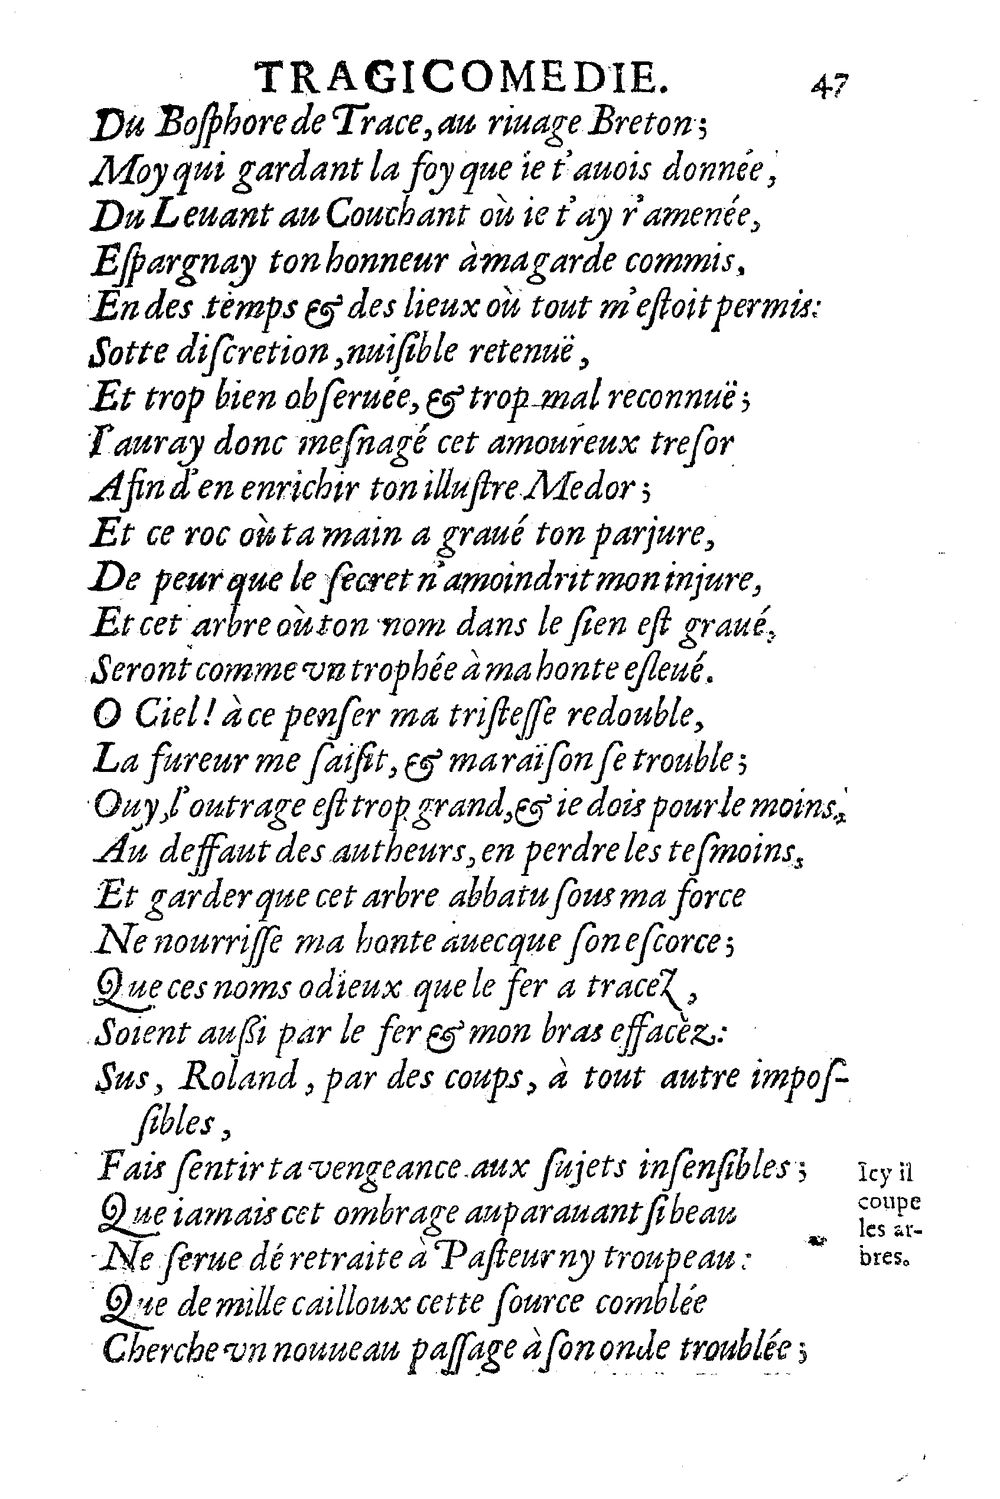 TRAGICOMEDIE. 47
Du Boſphore de Trace, au riuage Breton;
Moy qui gardant la foy que ie t'auois donnée,
Du Leuant au Couchant où ie t'ay r'amenée,
Eſpargnay ton honneur à ma garde commis,
En des temps & des lieux où tout m'eſtoit permis:
Sotte diſcretion, nuiſible retenuë,
Et trop bien obſeruée, & trop mal reconnuë;
I'auray donc meſnagé cet amoureux treſor
Afin d'en enrichir ton illuſtre Medor;
Et ce roc où ta main a graué ton parjure,
De peur que le ſecret n'amoindrit mon injure,
Et cet arbre où ton nom dans le ſien eſt graué,
Seront comme vn trophée à ma honte eſleué.
O Ciel! à ce penſer ma triſteſſe redouble,
La fureur me ſaiſit, & ma raiſon ſe trouble;
Ouy, l'outrage eſt trop grand, & ie dois pour le moins,
Au deffaut des autheurs, en perdre les teſmoins,
Et garder que cet arbre abbatu ſous ma force
Ne nourriſſe ma honte auecque ſon eſcorce;
Que ces noms odieux que le fer a tracez,
Soient auſſi par le fer & mon bras effacèz:
Sus, Roland, par des coups, à tout autre impoſ-
ſibles,
Fais ſentir ta vengeance aux ſujets inſenſibles;
Que iamais cet ombrage auparauant ſi beau
Ne ſerue dé retraite à Paſteur ny troupeau:
Que de mille cailloux cette ſource comblée
Cherche vn nouueau paſſage à ſon onde troublée;
Icy il
coupe
les ar-
bres.